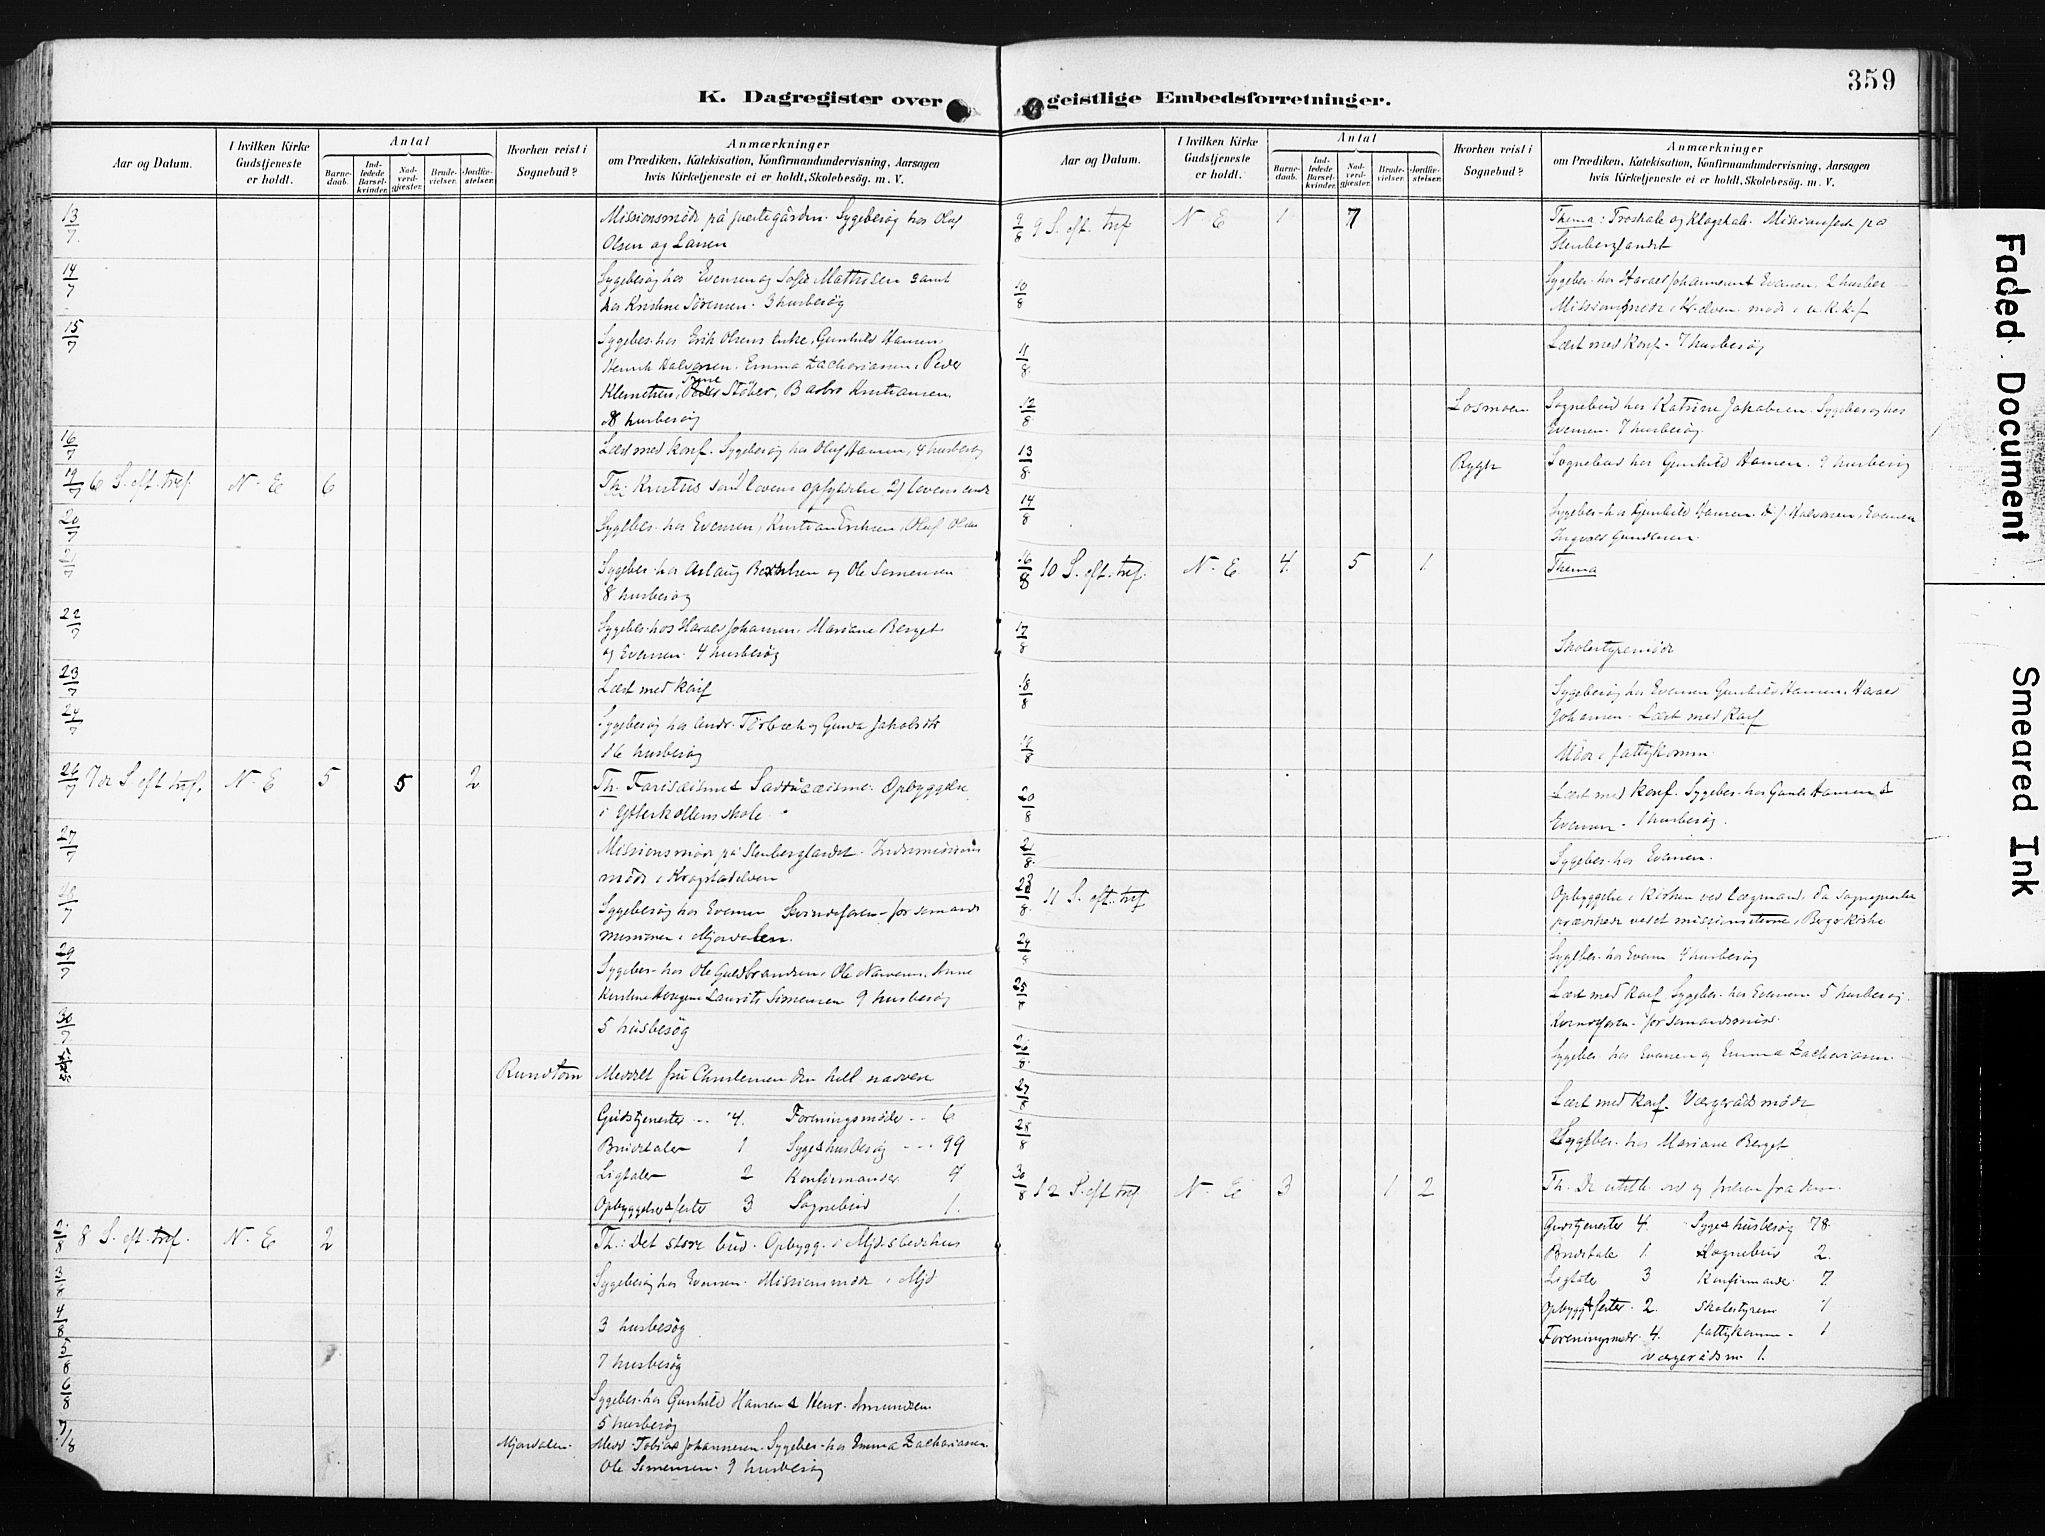 K. Dagregister over geistlige Embedsforretninger.
359
Aar og Datum.
I hvilken Kirke Gudstjeneste er holdt.
Antal
Barne-daab.
Ind-ledede Barsel-kvinder.
Nad-verd-gjester.
Brude-vielser.
Jordfæ-stelser.
Hvorhen reist i Sognebud?
Anmærkninger
om Prædiken, Katekisation, Konfirmandundervisning, Aarsagen
hvis Kirketjeneste ei er holdt, Skolebesög. m. V.
13/7 Missionsmöde på prestegården. Sygebesög hos Oluf
Olsen og Larsen
14/7 Sygebesög hos Evensen og Sofie Mathisen samt
hos Kristine Sörensen. 3 husbesög
15/7 Sygebes. hos Erik Olsens enke, Gunhild Hansen,
Henrik Halvorsen. Emma Zachariassen, Peder
Klemetsen, Stöber, Barbro Kristiansen.
8 husbesög
16/7 Læst med konf. Sygebesög hos Oluf Hansen, 4 husbesög
19/7 6 S. eft. tref. N. E 6 Th: Kristus som lovens opfyldelse 2) lovens ende
20/7 Sygebes. hos Evensen, Kristian Eriksen, Oluf Olsen
21/7 Sygebes. hos Aslaug og Ole Simensen
8 husbesög
22/7 Sygebes. hos Harald Johansen, Mariane Berget
og Evensen. 4 husbesög
23/7 Læst med konf
24/7 Sygebesög hos Andr. Torbæk og Gunda Jakobsdtr
16 husbesög
26/7 7de S eft tref. N. E 5 5 2 Th. Farisæisme & Saddukæisme. Opbyggelse
i Ytterkollens skole
27/7 Missionsmöde på Stenberglandet. Indremissions
möde i Krogstadelven
28/7 Sygebesög hos Evensen Kvindeforen. for sømands
missionen i Mjøndalen.
29/7 Sygebes. hos Ole Guldbrandsen, Ole Narvesen, Anne
Kirstine Haugen Laurits Simensen 9 husbesög
30/7 5 husbesög
Rundtom Meddelt fru Christensen den hell nadvere
Gudstjenester -- 4. Foreningsmöder -- 6
Brudetaler 1 Syge & husbesög --- 99
Ligtaler 2 Konfirmander 4
Opbyggelser & fester 3 Sognebud 1.
2/8 8 S. eft. tref. N. E 2 Th.: Det store bud. Opbygg. i Mjd.s bedehus
3/8 Sygebesög hos Evensen. Missionsmöde i Mjd
4/8 3 husbesög
5/8 7 husbesög
6/8 Sygebes. hos Gunhild Hansen & Henr. Amundsen
5 husbesög
7/8 Mjøndalen. Medd. Tobias Johannesen. Sygebes. hos Emma Zachariassen.
Ole Simensen. 9 husbesög
Aar og Datum.
I hvilken Kirke Gudstjeneste er holdt.
Antal
Barne-daab.
Ind-ledede Barsel-kvinder.
Nad-verd-gjester.
Brude-vielser.
Jordfæ-stelser.
Hvorhen reist i Sognebud?
Anmærkninger
om Prædiken, Katekisation, Konfirmandundervisning, Aarsagen
hvis Kirketjeneste ei er holdt, Skolebesög. m. V.
9/8 9 S. eft. tref N. E 1 7 Thema: Troskab og Klogskab. Missionsfest på
Stenberglandet
10/8 Sygebes. hos Harald Johannesen & Evensen. 2 husbes
Missionsmöde i Kr.elven. möde i u.k.k.f
11/8 Læst med konf. 7 husbesög
12/8 Losmoen Sognebud hos Katrine Jakobsen. Sygebesög hos
Evensen. 7 husbesög.
13/8 Bygh Sognebud hos Gunhild Hansen. 9 husbesög
14/8 Sygebes. hos Gunhild Hansen. Halvorsen, Evensen
Ingvald Gundersen.
16/8 10 S. eft. tref. N. E 4. 5 1. Thema
17/8 Skolestyremöde
18/8 Sygebesög hos Evensen Gunhild Hansen, Harald
Johansen. Læst med konf
Möde i fattigkomm.
20/8 Læst med konf. Sygebes. hos Gunh Hansen &
Evensen. 1 husbesög.
21/8 Sygebes. hos Evensen.
23/8 11 S. eft. tref Opbyggelse i kirken ved Lægmand, da sognepresten
prædikede ved et missionsstevne i Bergs kirke
24/8 Sygebes. hos Evensen 4 husbesög
25/8 Læst med konf Sygebes. hos Evensen 5 husbesög.
Kvindeforen. for sømandsmiss.
26/8 Sygebes. hos Evensen og Emma Zachariassen
27/8 Læst med konf. Værgerådsmöde
28/8 Sygebes. hos Mariane Berget
30/8 12 S. eft tref. N. E 3 1 2 Th.
Gudstjenester 4. Syge & husbesög 78.
Brudetale 1. Sognebud 2.
Ligtaler 3 Konfirmander 7
Opbygg & fester 2. Skolestyrem 1
Foreningsmöder 4. fattigkomm 1
værgerådsm 1.
Faded Document
Smeared Ink